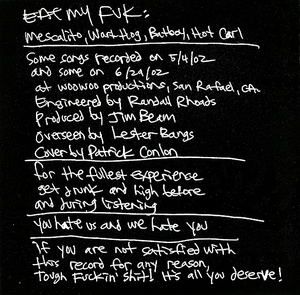 EAT MY FUK:
Mescalito, Wart Hog, Buttboy, Hot Carl
Some songs recorded on 5/4/02
and some on 6/29/02
at woowoo productions, San Rafael, CA.
Engineered by Randall Rhoads
Produced by Jim Beam
Overseen by Lester Bangs
Cover by Patrick Conlon
for the fullest experience
get drunk and high before
and during listening
you hate us and we hate you
If you are not satisfied with
this record for any reason,
Tough Fuckin' shit! It's all you deserve!